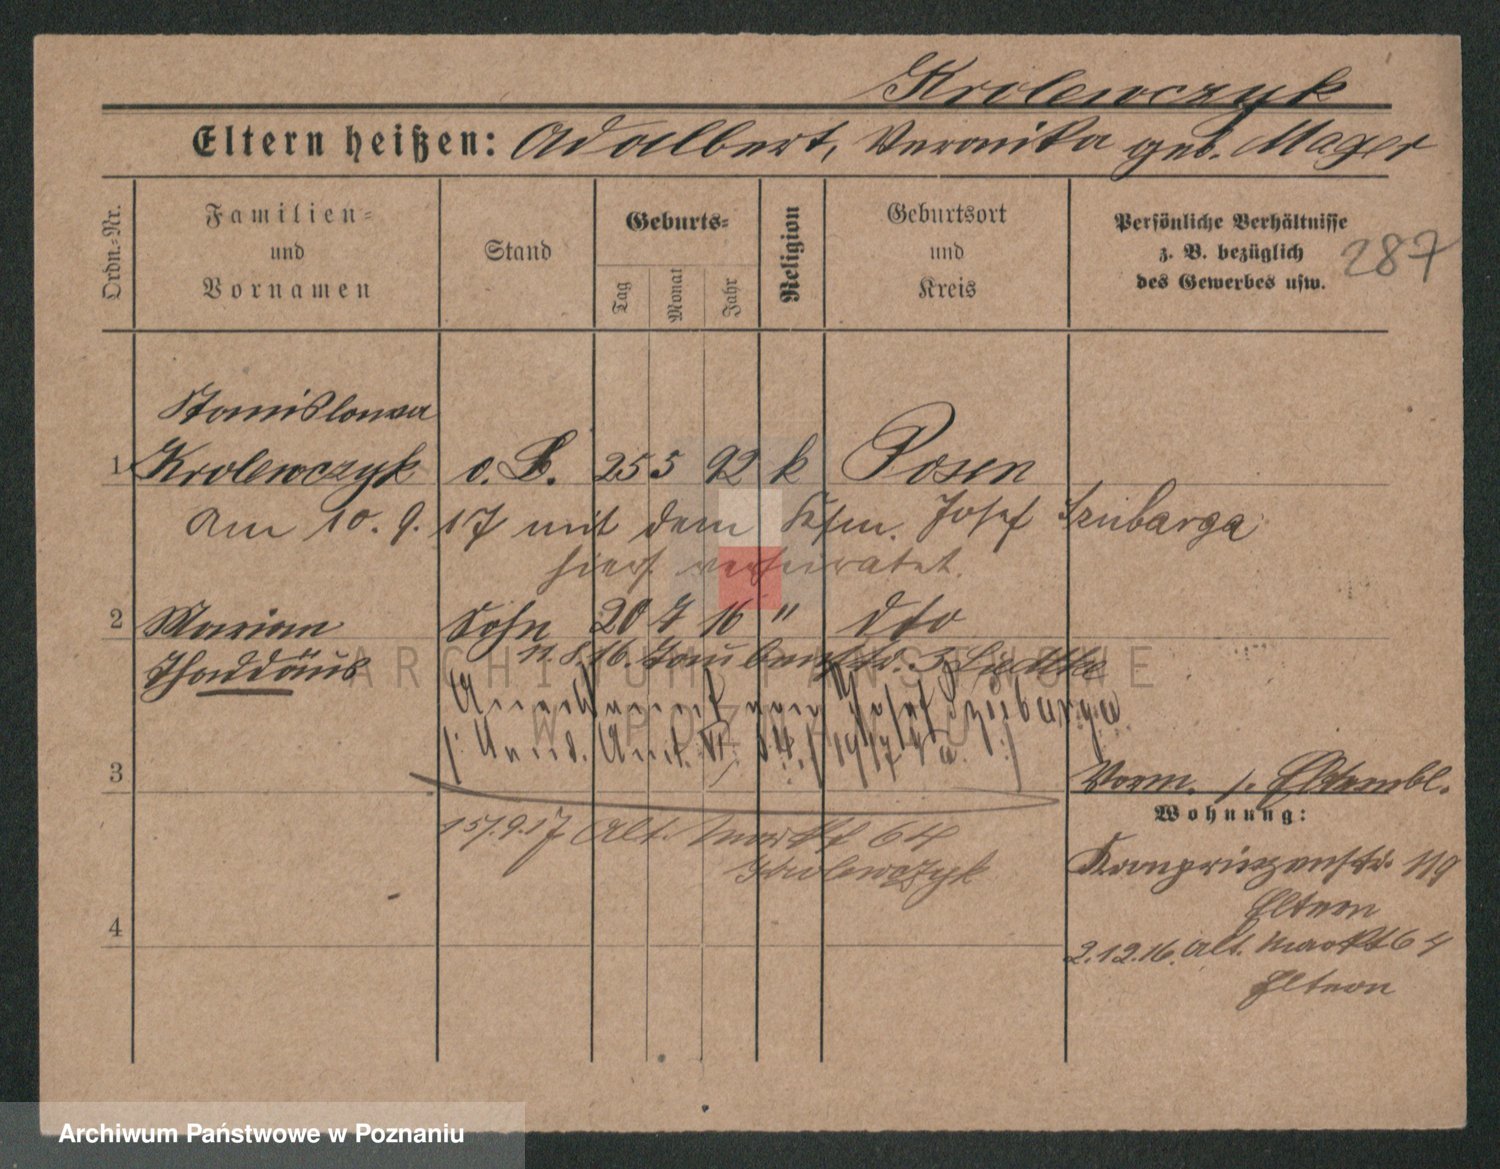 Krolewczyk
Eltern heißen: Adalbert, Veronika geb. Mager
Ordn.-Nr.
Familien-
und
Vornamen
Stand
Geburts-
Tag
Monat
Jahr
Religion
Geburtsort
und
Kreis
Persönliche Verhältnisse
z. B. bezüglich
des Gewerbes usw.
287
Stanislawa
1 Krolewczyk o. B. 25 5 92 k Posen
Am 10. 9. 17 mit dem Kfm. Josef Szubarga
hier verheiratet.
2 Marian Sohn 20 7 16 " dto
Thaddäus
11. 8. 16.
Anerkannt vom Josef Szubarga
3
Vorm. s. Elternbl.
Wohnung:
15/9.17 Alt. Markt 64
Krolewczyk
Kronprinzenstr. 119
Eltern
4
2.12.16. Alt. Markt 64
Eltern
ARCHIWUM PAŃSTWOWE
W POZNANIU
Archiwum Państwowe w Poznaniu